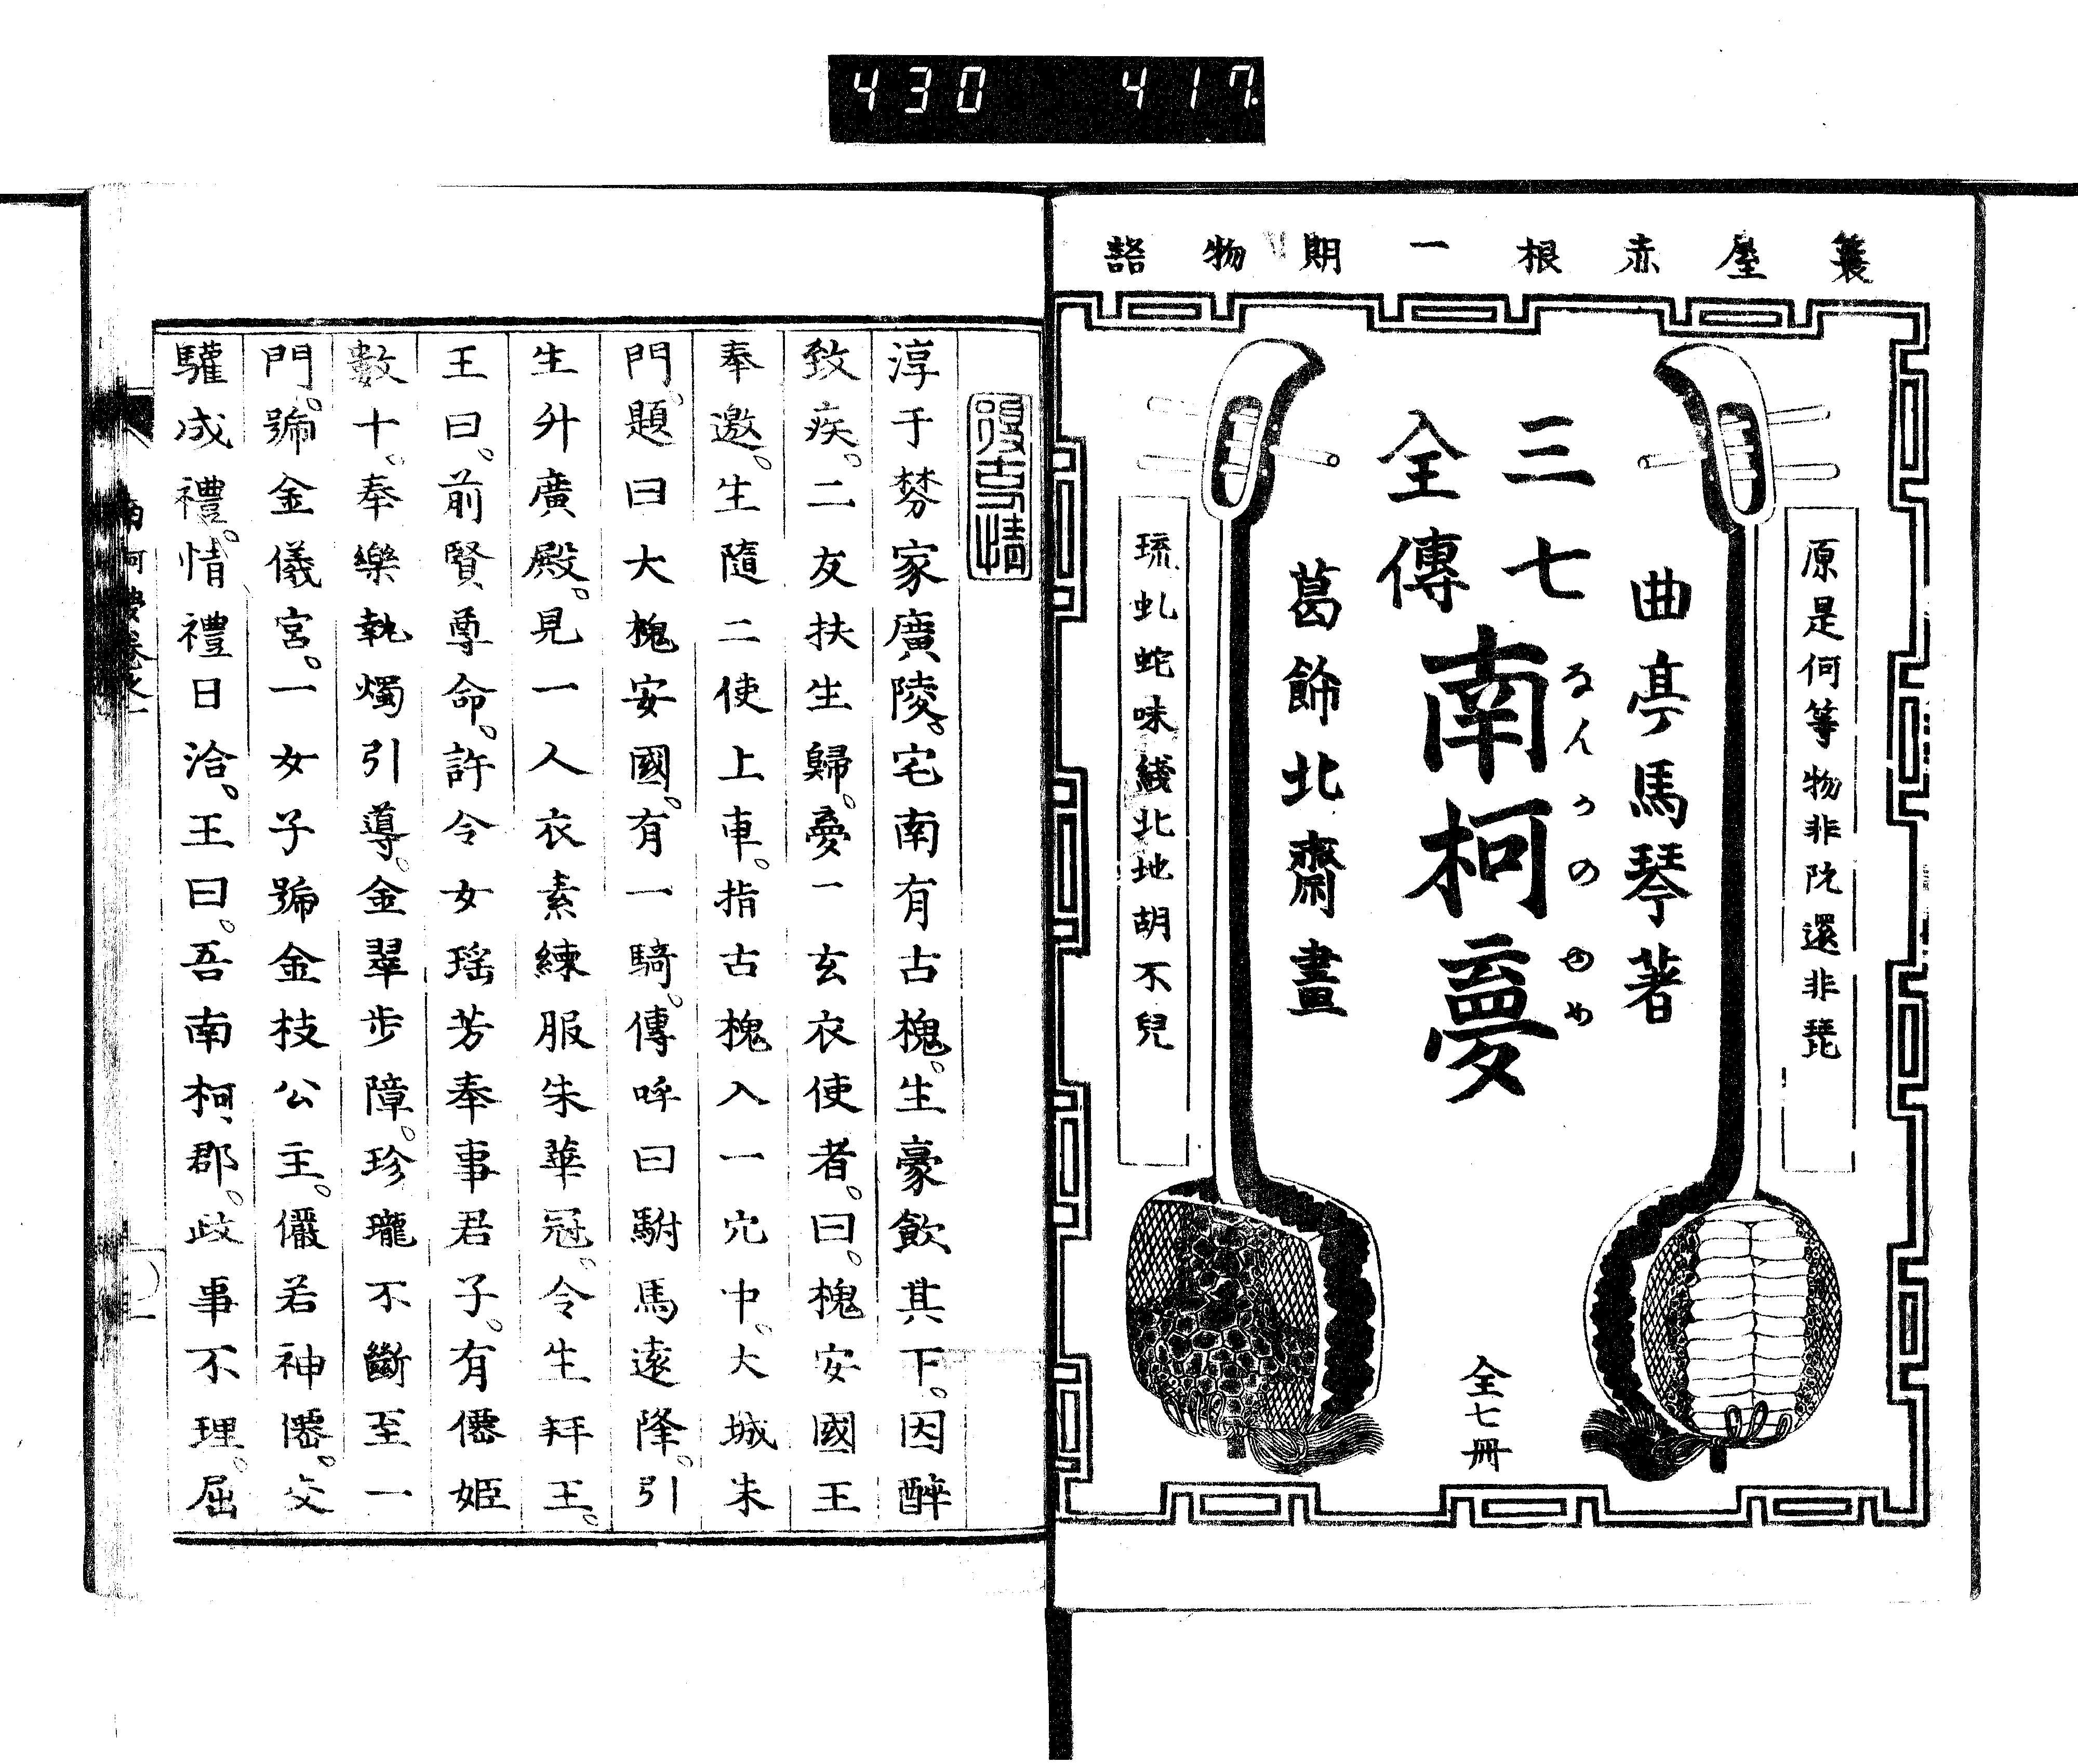 430 417
簑屋赤根一期物語
原是何等物非阮還非琵
曲亭馬琴著
三七
全傳
南柯夢
なんかのゆめ
葛飾北齋畫
琉虬蛇味綫北地胡不兒
全七冊
淳于棼家廣陵。宅南有古槐。生豪飲其下。因醉
致疾。二友扶生歸。夢一玄衣使者。曰。槐安國王
奉邀。生隨二使上車。指古槐入一穴中。大城朱
門。題曰大槐安國。有一騎。傳呼曰駙馬遠降。引
生升廣殿。見一人衣素練服朱華冠。令生拜王。
王曰。前賢尊命。許令女瑤芳奉事君子。有僊姬
數十。奉樂執燭引導。金翠步障。珍瓏不斷至一
門。號金儀宮。一女子號金枝公主。儼若神僊。交
驩成禮。情禮日洽。王曰。吾南柯郡。政事不理。屈
南柯夢卷之一